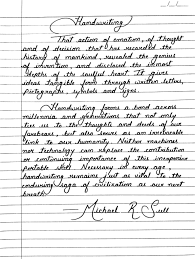 Handwriting
That action of emotion, of thought
and of decision that has recorded the
history of mankind, revealed the genius
of invention, and disclosed the inmost
depths of the soulful heart. It gives
ideas tangible form through written letters,
pictographs, symbols and signs.
Handwriting forms a bond across
millennia and generations that not only
ties us to the thoughts and deeds of our
forebears, but also serves as an irrevocable
link to our humanity. Neither machines
nor technology can replace the contribution
or continuing importance of this inexpensive
portable skill. Necessary in every age,
handwriting remains just as vital to the
enduring saga of civilization as our next
breath.
Michael R Sull